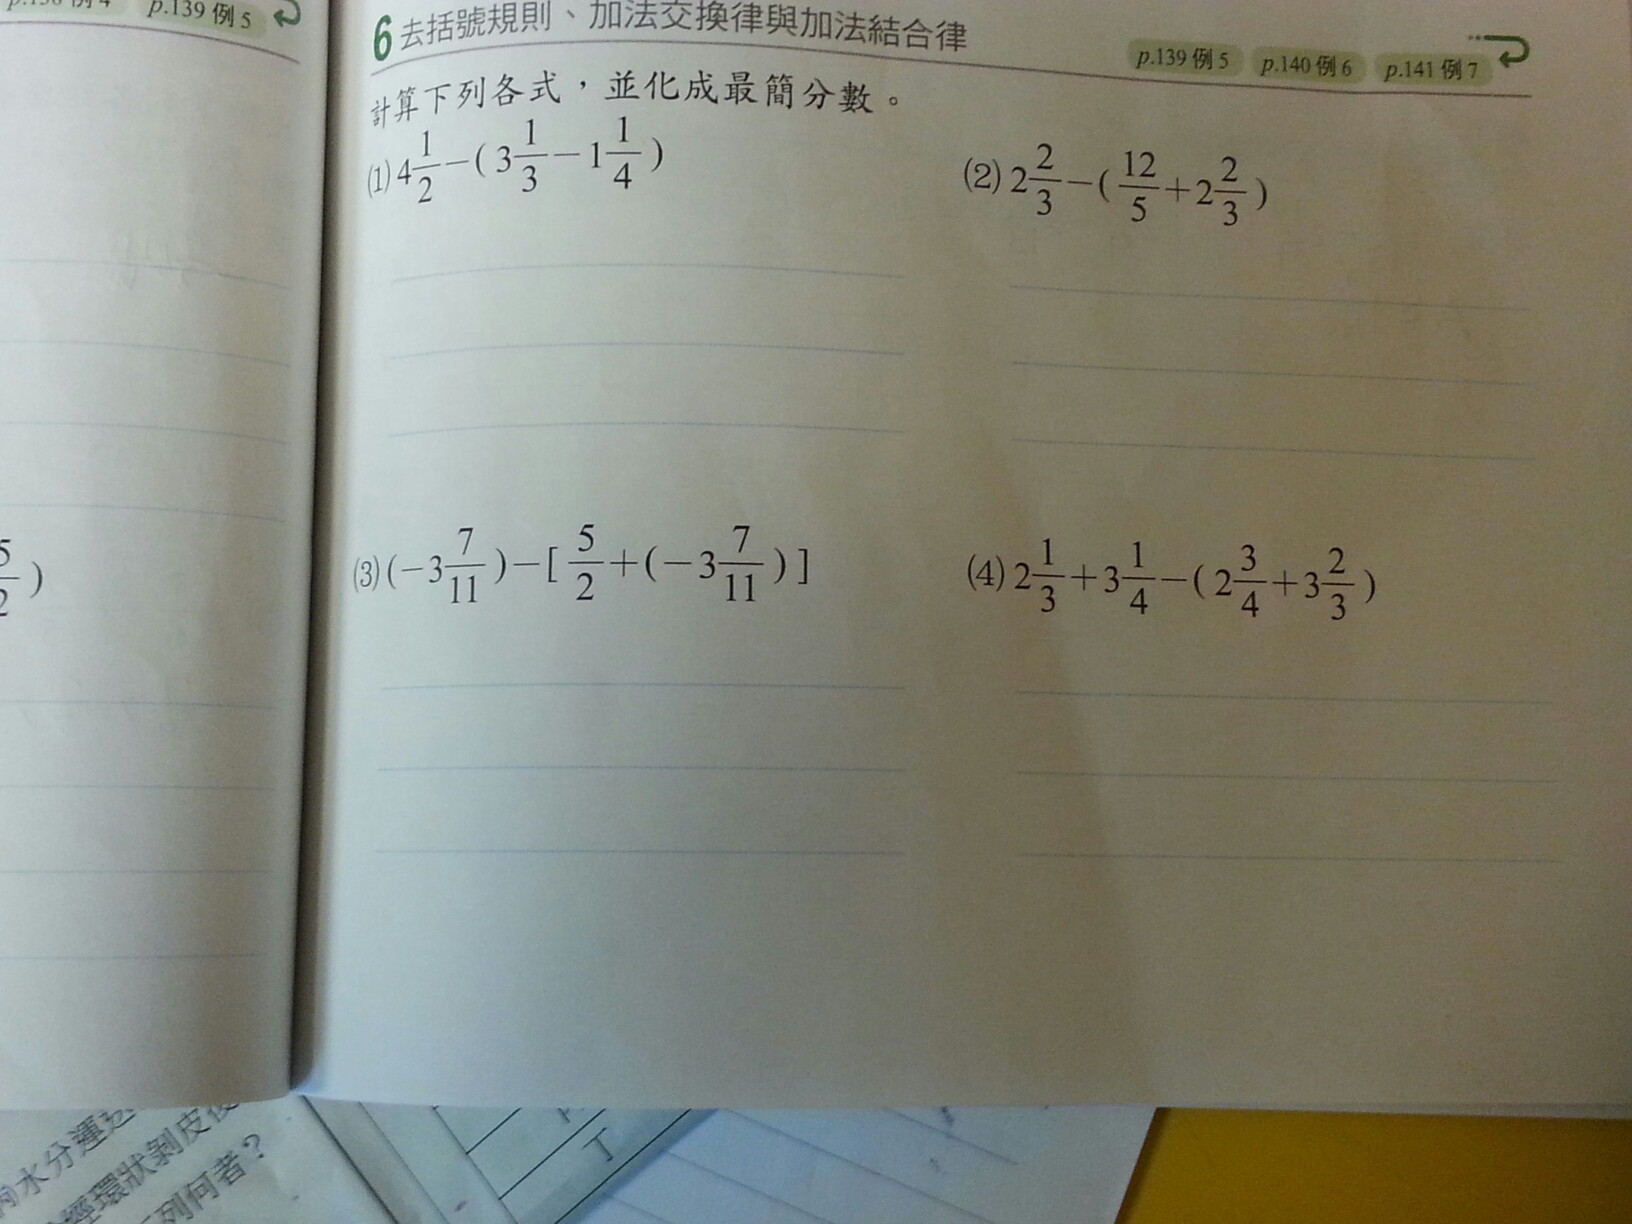 p.139 例 5
6 去括號規則、加法交換律與加法結合律
p.139 例 5 p.140 例 6 p.141 例 7
計算下列各式，並化成最簡分數。
(1) 4 1/2 − ( 3 1/3 − 1 1/4 )
(2) 2 2/3 − ( 12/5 + 2 2/3 )
(3) (−3 7/11 ) − [ 5/2 + (−3 7/11 ) ]
(4) 2 1/3 + 3 1/4 − ( 2 3/4 + 3 2/3 )
水分運送
經環狀剝皮後
列何者？
丁